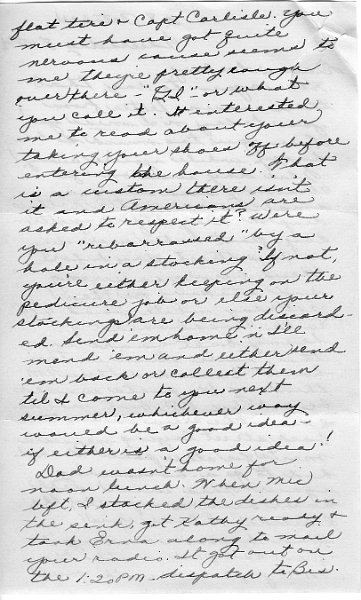 flat tire & Capt Carlisle. You
must have got quite
nervous cause seems to
me they're pretty rough
over there - "G I" or what
you call it. It interested
me to read about your
taking your shoes off before
entering the house. That
is a custom there isn't
it and Americans are
asked to respect it? Were
you "rebarrassed" by a
hole in a stocking? If not,
you're either keeping on the
pedicure job or else your
stockings are being discard-
ed. Send 'em home 'n I'll
mend 'em and either send
'em back or collect them
til I come to you next
summer, whichever way
would be a good idea -
if either is a good idea!
Dad wasn't home for
noon lunch. When Mic
left, I stacked the dishes in
the sink, got Kathy ready &
took Erna along to mail
your radio. It got out on
the 1:20 PM dispatch to Bis.